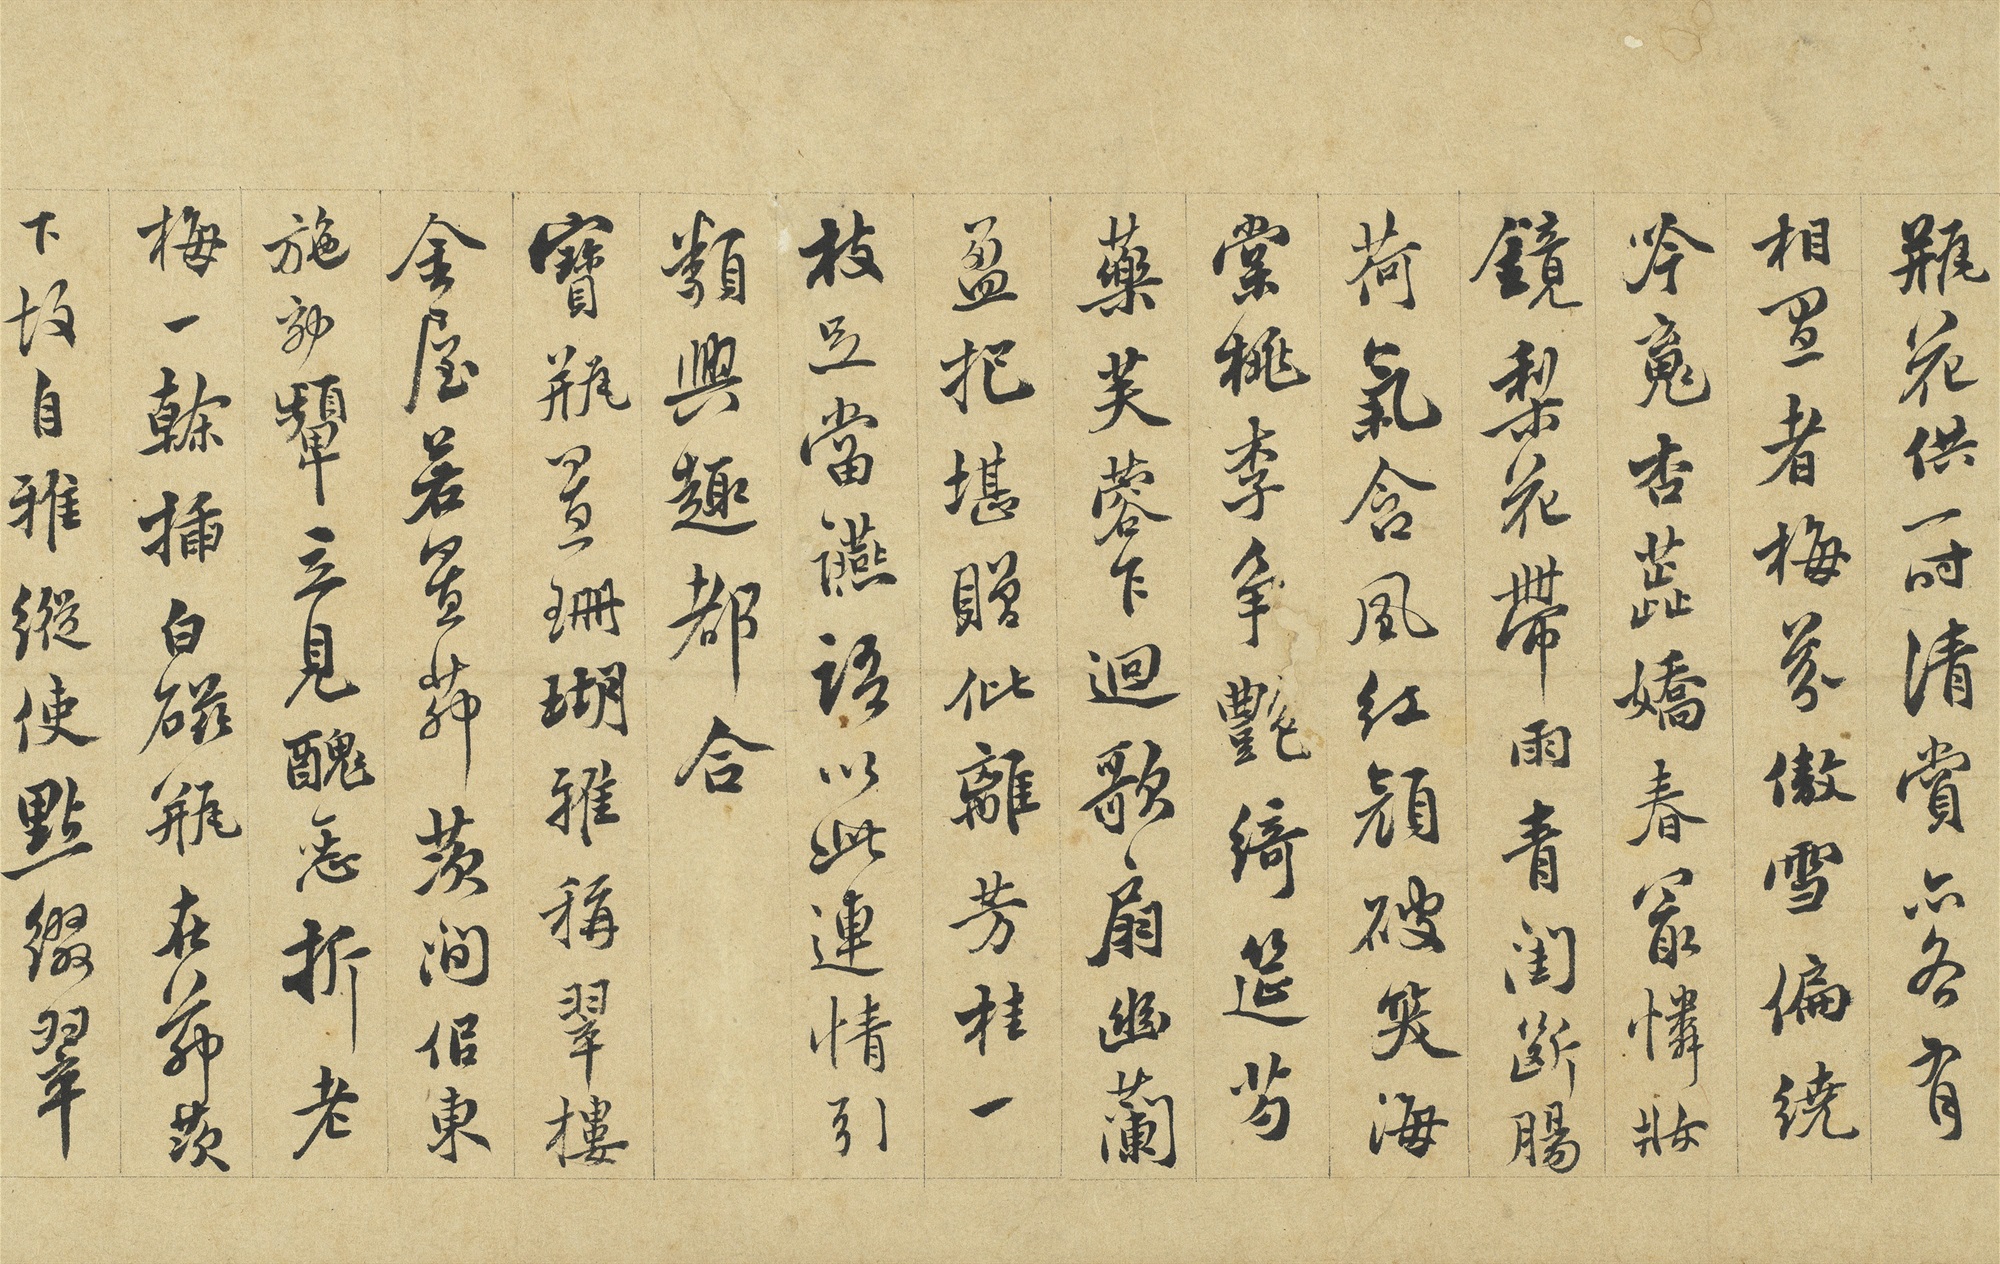 瓶花供一時清賞亦各有
相宜者梅芬傲雪偏繞
吟魂杏蕊嬌春最憐妝
鏡梨花帶雨青閨斷腸
荷氣含風紅顏破笑海
棠桃李爭艷綺筵芍
藥芙蓉乍迴歌扇幽蘭
盈把堪贈仳離芳桂一
枝足當讌語以此連情引
類興趣都合
寶瓶置珊瑚雅稱翠樓
金屋若置茆茨澗侶東
施効顰立見醜惡折老
梅一榦插白磁瓶在茆茨
下故自雅縱使點綴翠